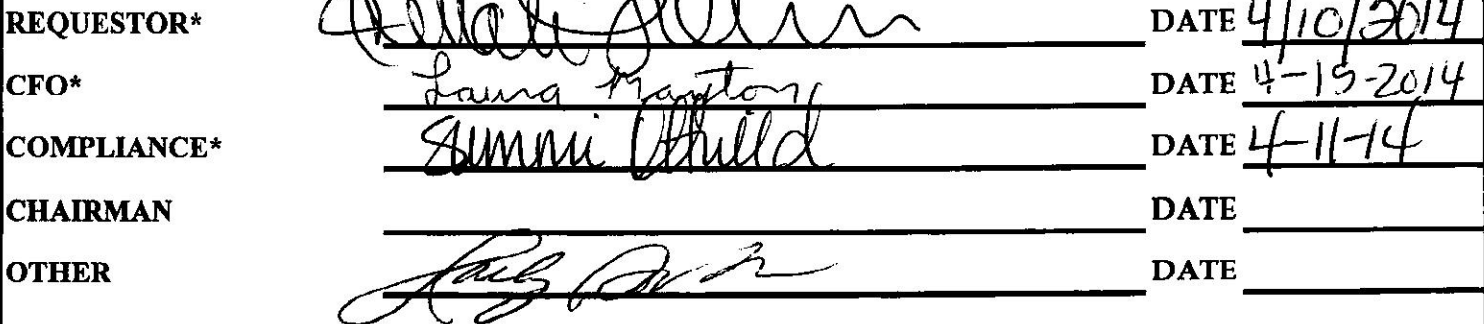 REQUESTOR* DATE 4/10/2014
CFO* Laura DATE 4-15-2014
COMPLIANCE* DATE 4-11-14
CHAIRMAN DATE
OTHER DATE